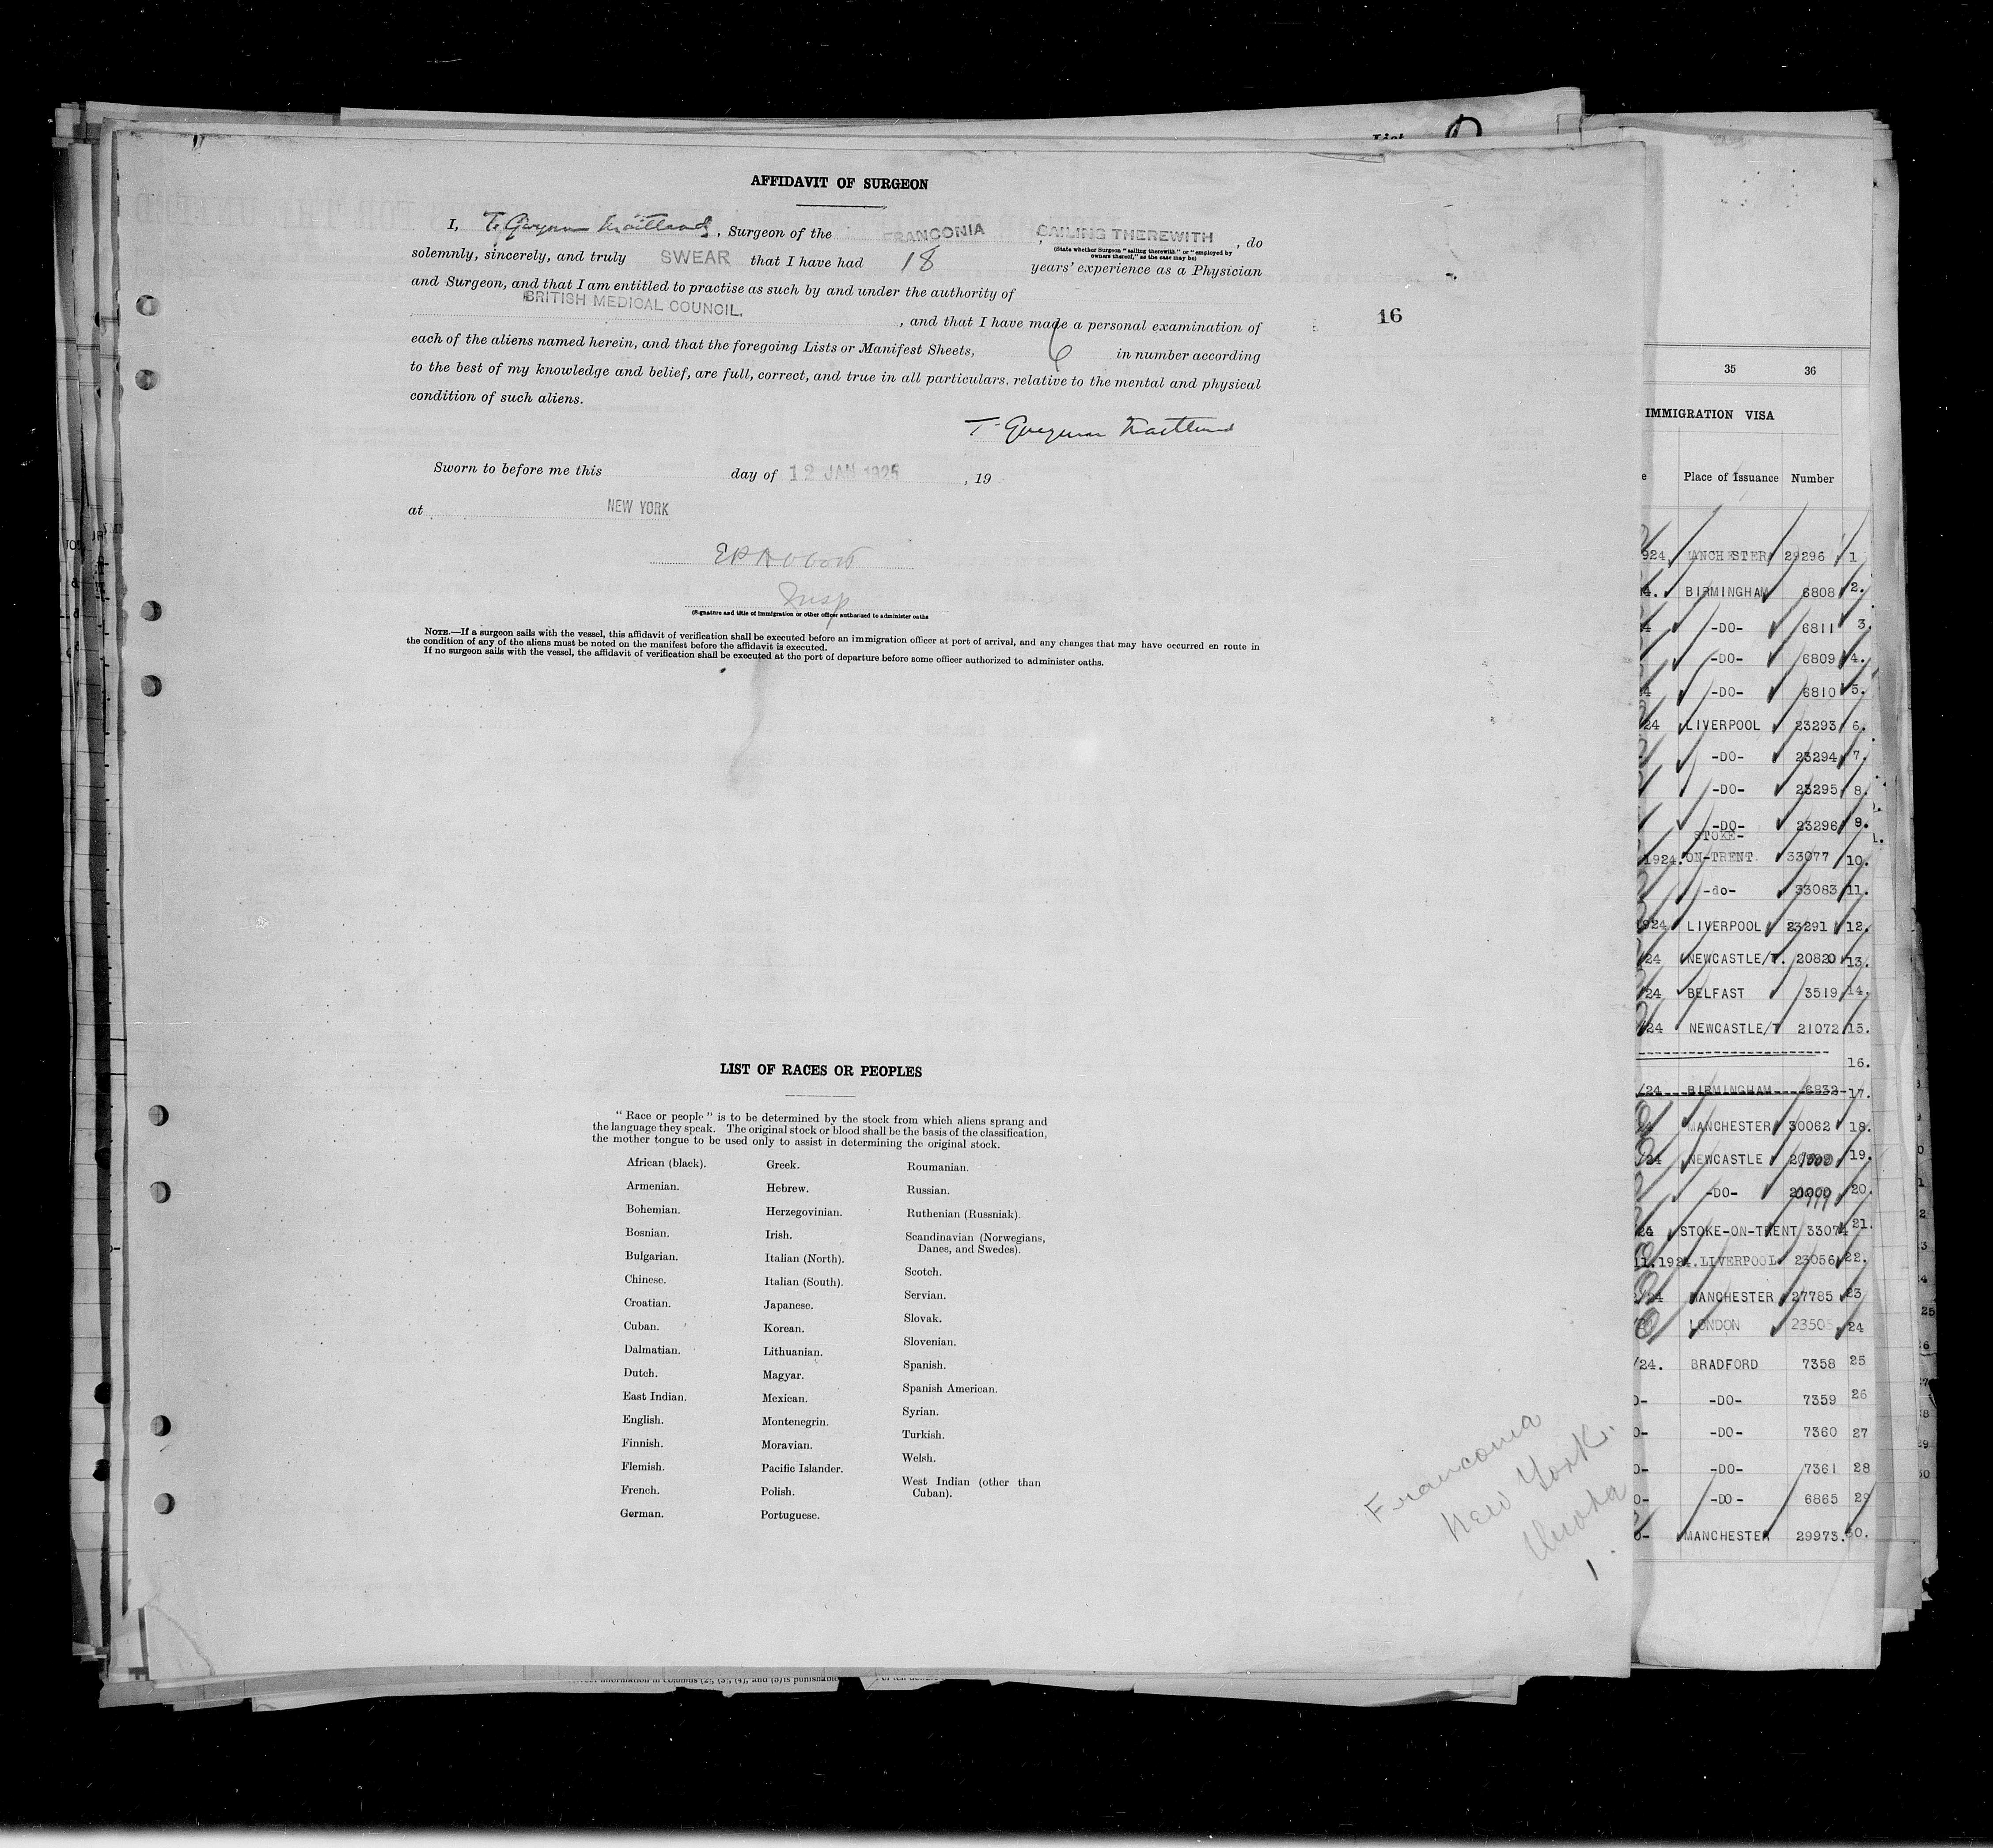 AFFIDAVIT OF SURGEON
I, T. Gwynne Maitland, Surgeon of the FRANCONIA, SAILING THEREWITH, do
(State whether Surgeon "sailing therewith" or "employed by
owners thereof," as the case may be)
solemnly, sincerely, and truly SWEAR that I have had 18 years' experience as a Physician
and Surgeon, and that I am entitled to practise as such by and under the authority of
BRITISH MEDICAL COUNCIL.
, and that I have made a personal examination of
each of the aliens named herein, and that the foregoing Lists or Manifest Sheets, 6 in number according
to the best of my knowledge and belief, are full, correct, and true in all particulars, relative to the mental and physical
condition of such aliens.
T. Gwynne Maitland
Sworn to before me this day of 12 JAN 1925, 19
at NEW YORK
Insp
(Signature and title of immigration or other officer authorized to administer oaths
NOTE.—If a surgeon sails with the vessel, this affidavit of verification shall be executed before an immigration officer at port of arrival, and any changes that may have occurred en route in
the condition of any of the aliens must be noted on the manifest before the affidavit is executed.
If no surgeon sails with the vessel, the affidavit of verification shall be executed at the port of departure before some officer authorized to administer oaths.
16
LIST OF RACES OR PEOPLES
"Race or people" is to be determined by the stock from which aliens sprang and
the language they speak. The original stock or blood shall be the basis of the classification,
the mother tongue to be used only to assist in determining the original stock.
African (black).
Armenian.
Bohemian.
Bosnian.
Bulgarian.
Chinese.
Croatian.
Cuban.
Dalmatian.
Dutch.
East Indian.
English.
Finnish.
Flemish.
French.
German.
Greek.
Hebrew.
Herzegovinian.
Irish.
Italian (North).
Italian (South).
Japanese.
Korean.
Lithuanian.
Magyar.
Mexican.
Montenegrin.
Moravian.
Pacific Islander.
Polish.
Portuguese.
Roumanian.
Russian.
Ruthenian (Russniak).
Scandinavian (Norwegians,
Danes, and Swedes).
Scotch.
Servian.
Slovak.
Slovenian.
Spanish.
Spanish American.
Syrian.
Turkish.
Welsh.
West Indian (other than
Cuban).
Franconia
New York.
Quota
1
35 36
IMMIGRATION VISA
Place of Issuance Number
924 ANCHESTER 29296 1
4. BIRMINGHAM 6808 2.
4 -DO- 6811 3.
-DO- 6809 4.
4 -DO- 6810 5.
24 LIVERPOOL 23293 6.
-DO- 23294 7.
-DO- 23295 8.
-DO- 23296 9.
STOKE-
1924. ON-TRENT. 33077 10.
-do- 33083 11.
924 LIVERPOOL 23291 12.
/24 NEWCASTLE/T. 20820 13.
/24 BELFAST 3519 14.
/24 NEWCASTLE/T 21072 15.
16.
/24 BIRMINGHAM 6832 17.
4 MANCHESTER 30062 18.
/24 NEWCASTLE 19.
-DO- 20.
24 STOKE-ON-TRENT 33074 21.
11.1924. LIVERPOOL 23056 22.
24 MANCHESTER 27785 23
LONDON 23505 24
/24. BRADFORD 7358 25
-DO- 7359 26
-DO- 7360 27
-DO- 7361 28
-DO- 6865 29
MANCHESTER 29973. 30.